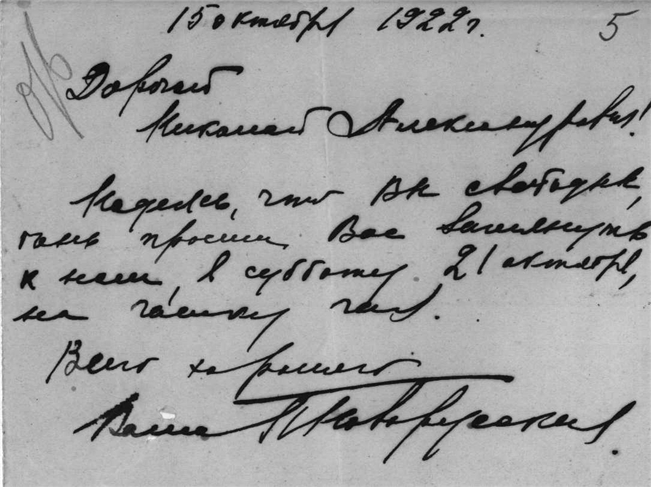 15 октября 1922 г.
5
Дорогой
Николай Александрович!
Надеясь, что Вы свободны,
просим Вас заглянуть
к нам, в субботу, 21 октября,
на чашку чая.
Всего хорошего
Ваш Новорусский.